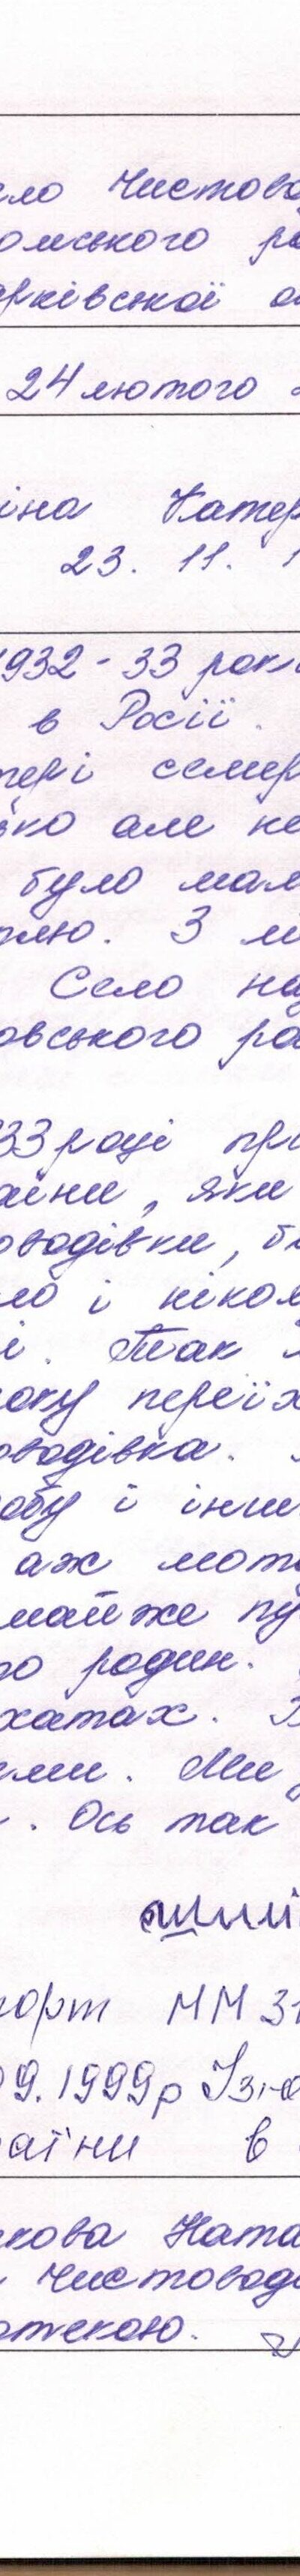 ело Чистово
омського ра
арківської о
24 лютого 2
іна Катер
23. 11. 1
1932-33 рокі
в Росії.
тері семер
ько але не
було мал
млю. З м
Село на
овського ра
33 році пр
аїни, яки
оводівки, б
ло і ніком
і. Так м
оку переїх
оводівка.
робу і інш
аж мото
майже пу
ро родин.
хатах. В
ими. Ми
. Ось так
порт ММ 31
09.1999р Ізю
раїни в
кова Ната
Чистоводі
отекою.